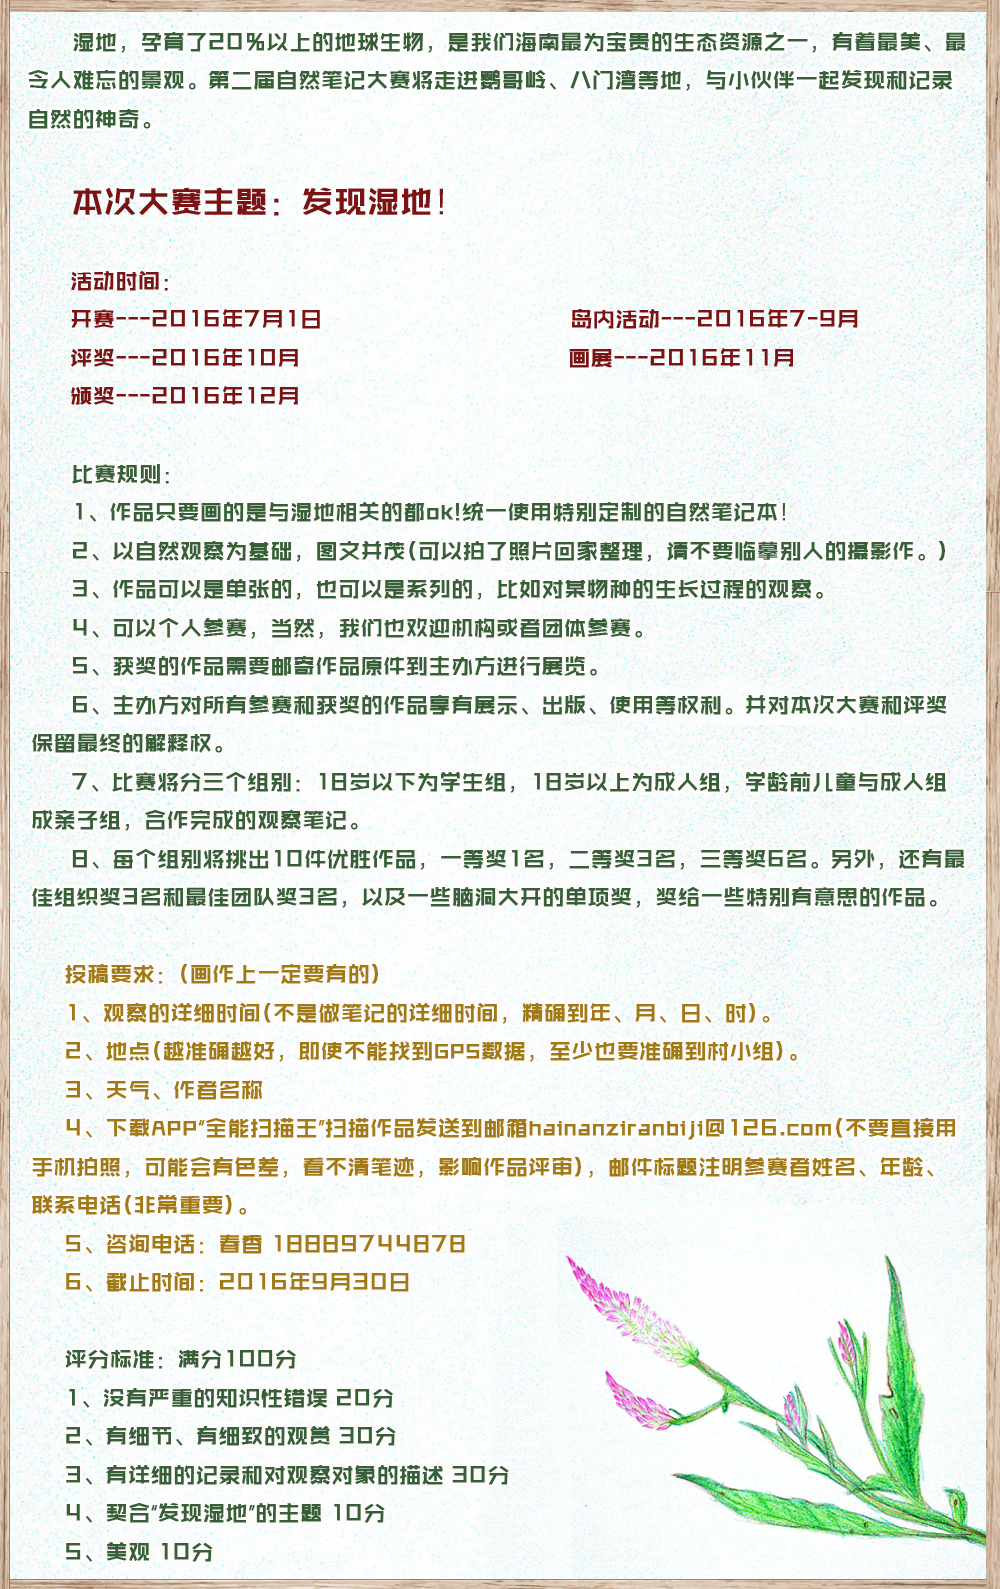 湿地，孕育了20%以上的地球生物，是我们海南最为宝贵的生态资源之一，有着最美、最
令人难忘的景观。第二届自然笔记大赛将走进鹦哥岭、八门湾等地，与小伙伴一起发现和记录
自然的神奇。
本次大赛主题：发现湿地！
活动时间：
开赛---2016年7月1日 岛内活动---2016年7-9月
评奖---2016年10月 画展---2016年11月
颁奖---2016年12月
比赛规则：
1、作品只要画的是与湿地相关的都ok!统一使用特别定制的自然笔记本！
2、以自然观察为基础，图文并茂(可以拍了照片回家整理，请不要临摹别人的摄影作。)
3、作品可以是单张的，也可以是系列的，比如对某物种的生长过程的观察。
4、可以个人参赛，当然，我们也欢迎机构或者团体参赛。
5、获奖的作品需要邮寄作品原件到主办方进行展览。
6、主办方对所有参赛和获奖的作品享有展示、出版、使用等权利。并对本次大赛和评奖
保留最终的解释权。
7、比赛将分三个组别：18岁以下为学生组，18岁以上为成人组，学龄前儿童与成人组
成亲子组，合作完成的观察笔记。
8、每个组别将挑出10件优胜作品，一等奖1名，二等奖3名，三等奖6名。另外，还有最
佳组织奖3名和最佳团队奖3名，以及一些脑洞大开的单项奖，奖给一些特别有意思的作品。
投稿要求：(画作上一定要有的)
1、观察的详细时间(不是做笔记的详细时间，精确到年、月、日、时)。
2、地点(越准确越好，即使不能找到GPS数据，至少也要准确到村小组)。
3、天气、作者名称
4、下载APP“全能扫描王”扫描作品发送到邮箱hainanziranbiji@126.com(不要直接用
手机拍照，可能会有色差，看不清笔迹，影响作品评审)，邮件标题注明参赛者姓名、年龄、
联系电话(非常重要)。
5、咨询电话：春香 18889744878
6、截止时间：2016年9月30日
评分标准：满分100分
1、没有严重的知识性错误 20分
2、有细节、有细致的观赏 30分
3、有详细的记录和对观察对象的描述 30分
4、契合“发现湿地”的主题 10分
5、美观 10分